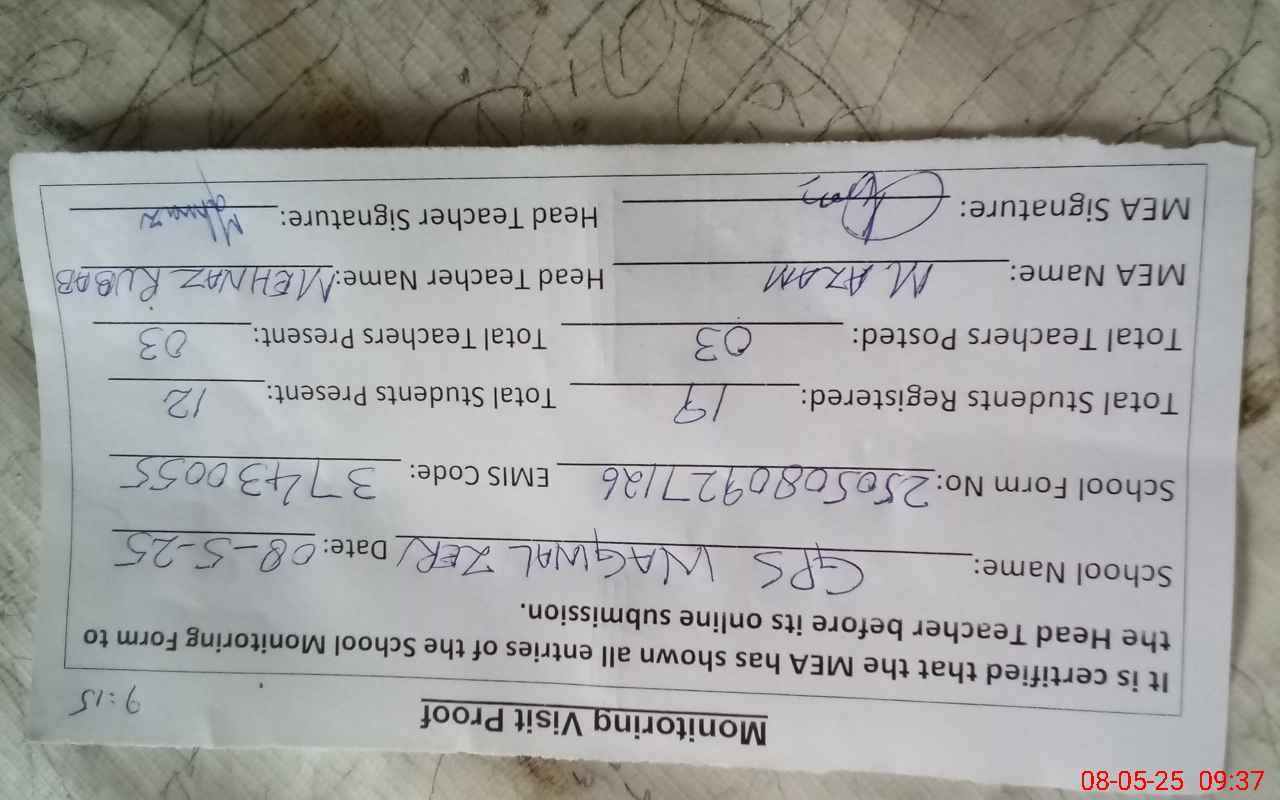 Monitoring Visit Proof
9:15
It is certified that the MEA has shown all entries of the School Monitoring Form to
the Head Teacher before its online submission.
School Name: GPS WAGWAL ZERI Date: 08-5-25
School Form No: 2505080927126 EMIS Code: 37430055
Total Students Registered: 19 Total Students Present: 12
Total Teachers Posted: 03 Total Teachers Present: 03
MEA Name: M AZAM Head Teacher Name: MEHNAZ RUBAB
MEA Signature: Head Teacher Signature: Mehnaz
08-05-25 09:37